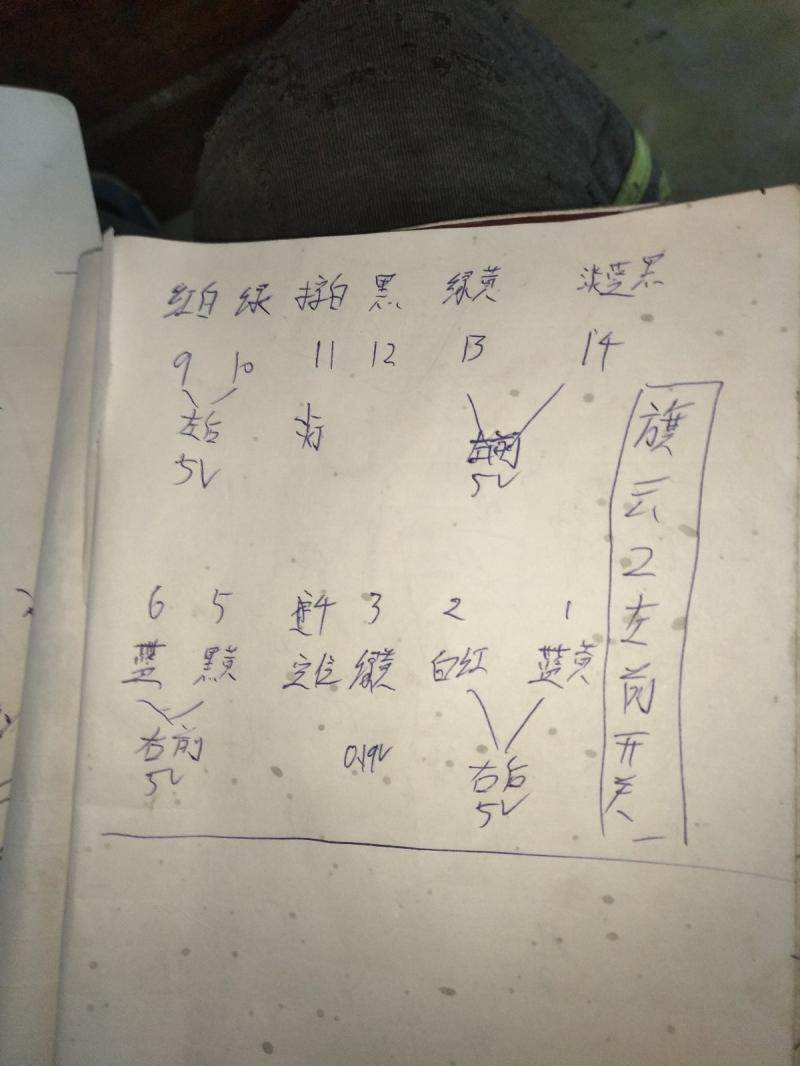 红白 绿 棕白 黑 绿黄 淡蓝黑
9 10 11 12 13 14
左后 灯 左前
5V 5V
6 5 4 3 2 1
蓝 黑黄 定位 绿黄 白红 蓝黄
右前 0.19V 右后
5V 5V
旗云2左前开关